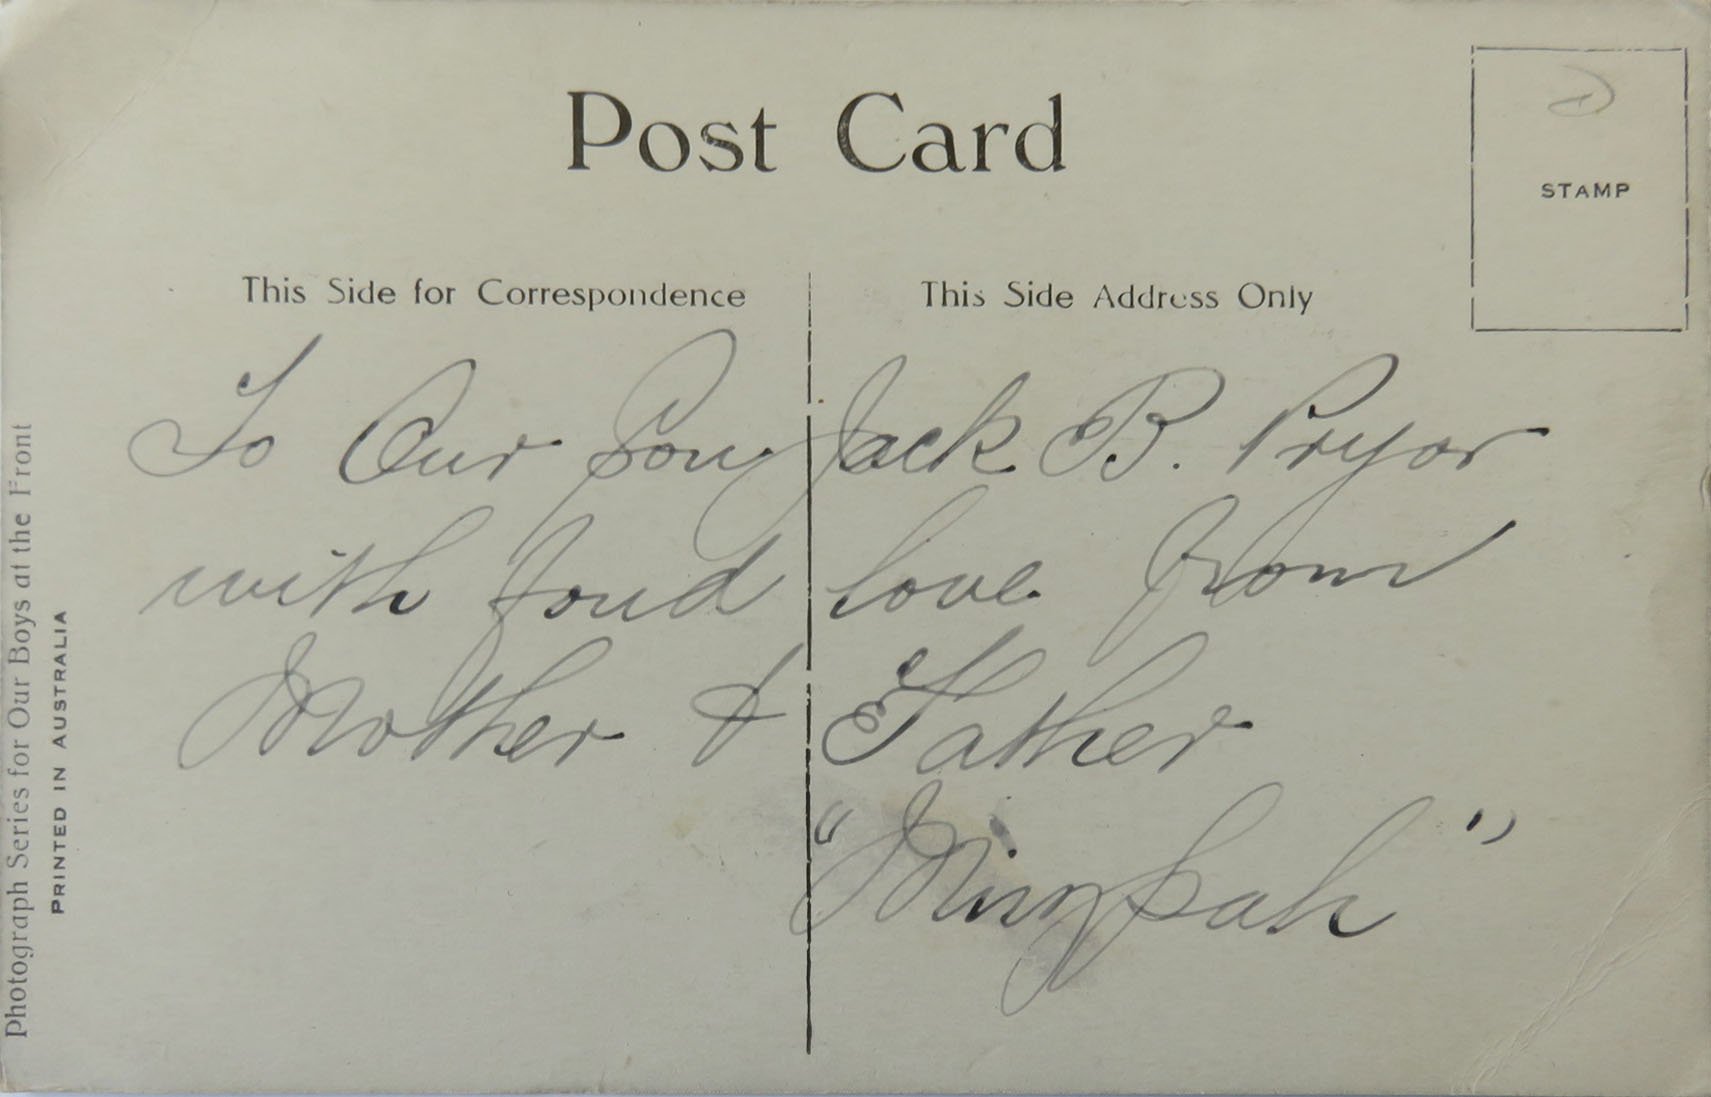 Post Card
STAMP
This Side for Correspondence
This Side Address Only
To Our Son Jack B. Pryor
with fond love from
Mother & Father
"Mizpah"
Photograph Series for Our Boys at the Front
PRINTED IN AUSTRALIA